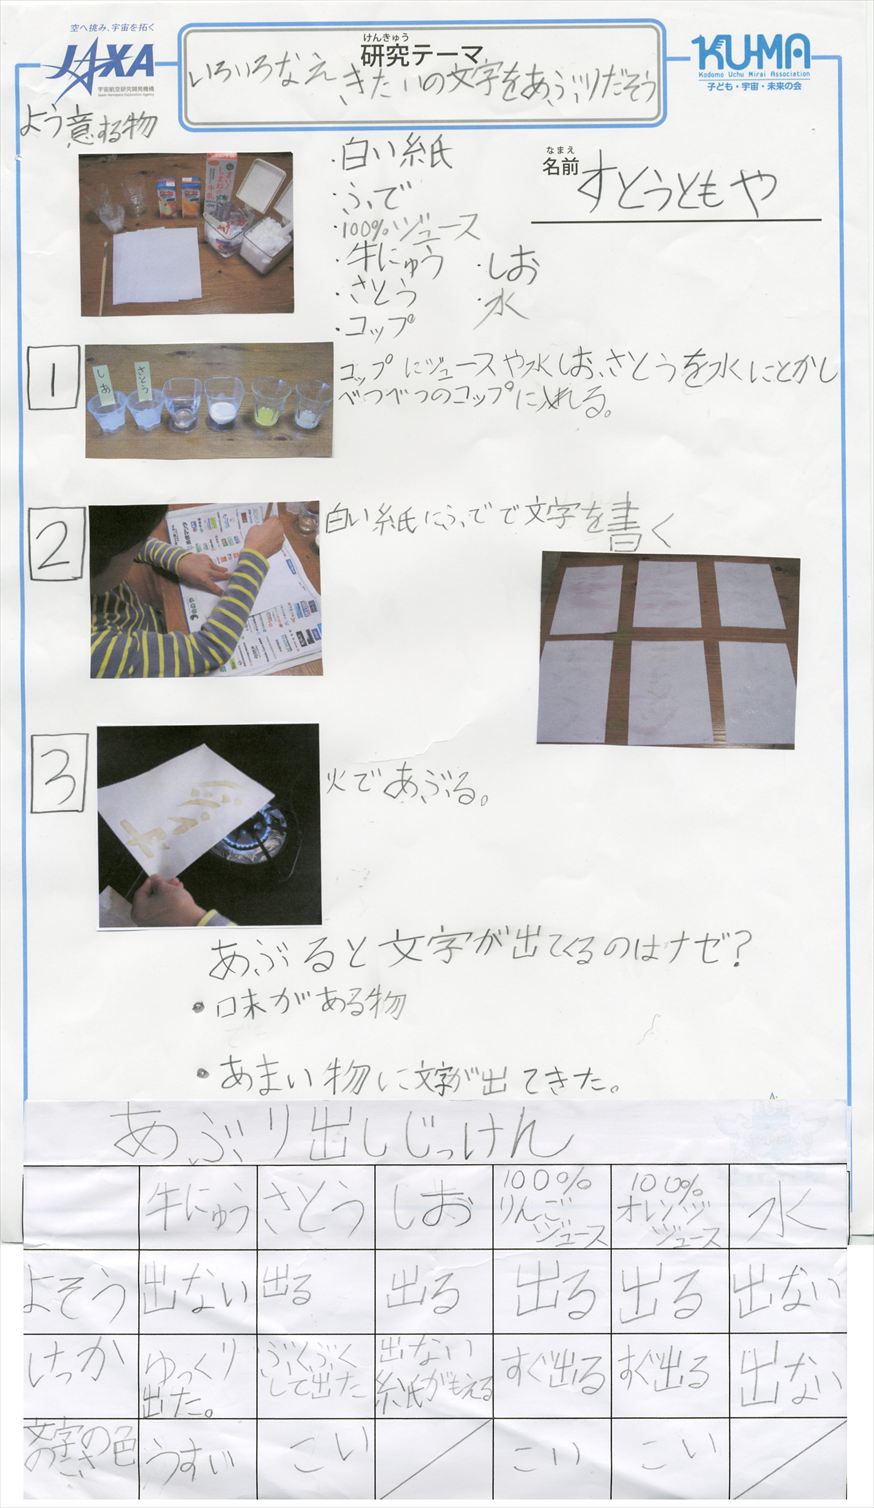 空へ挑み、宇宙を拓く
JAXA
宇宙航空研究開発機構
Japan Aerospace Exploration Agency
けんきゅう
研究テーマ
いろいろなえきたいの文字をあぶりだそう
KU-MA
Kodomo Uchu Mirai Association
子ども・宇宙・未来の会
よう意する物
・白い紙
・ふで
・100%ジュース
・牛にゅう
・さとう
・コップ
・しお
・水
なまえ
名前
すとうともや
1
しお
さとう
コップにジュースや水しお、さとうを水にとかし
べつべつのコップに入れる。
2
白い紙にふでで文字を書く
3
火であぶる。
あぶると文字が出てくるのはナゼ?
・味がある物
・あまい物に文字が出てきた。
あぶり出しじっけん
牛にゅう さとう しお 100%りんごジュース 100%オレンジジュース 水
よそう 出ない 出る 出る 出る 出る 出ない
けっか ゆっくり出た。 ぶくぶくして出た 出ない紙がもえる すぐ出る すぐ出る 出ない
文字の色のこさ うすい こい こい こい